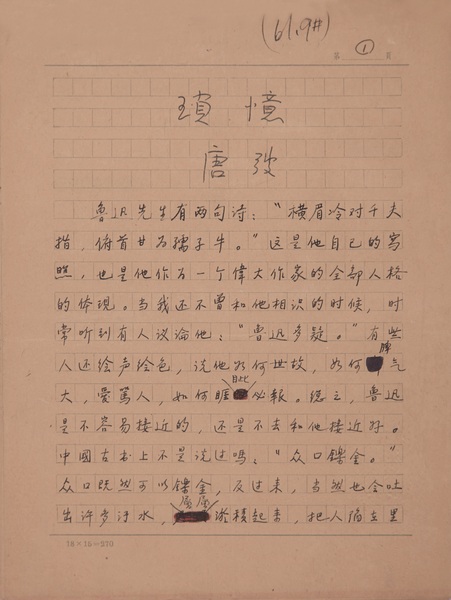 (61.9#)
第 ① 页
瑣憶
唐弢
鲁迅先生有两句诗："横眉冷对千夫
指，俯首甘为孺子牛。"这是他自己的写
照，也是他作为一个偉大作家的全部人格
的体现。当我还不曾和他相识的时候，时
常听到有人议论他："鲁迅多疑。"有些
人还绘声绘色，说他如何世故，如何脾气
大，爱骂人，如何睚眦必報。總之，鲁迅
是不容易接近的，还是不去和他接近好。
中國古书上不是说过吗："众口鑠金。"
众口既然可以鑠金，反过来，当然也会吐
出许多汙水，屢屢淤積起来，把人淹在里
18×15=270